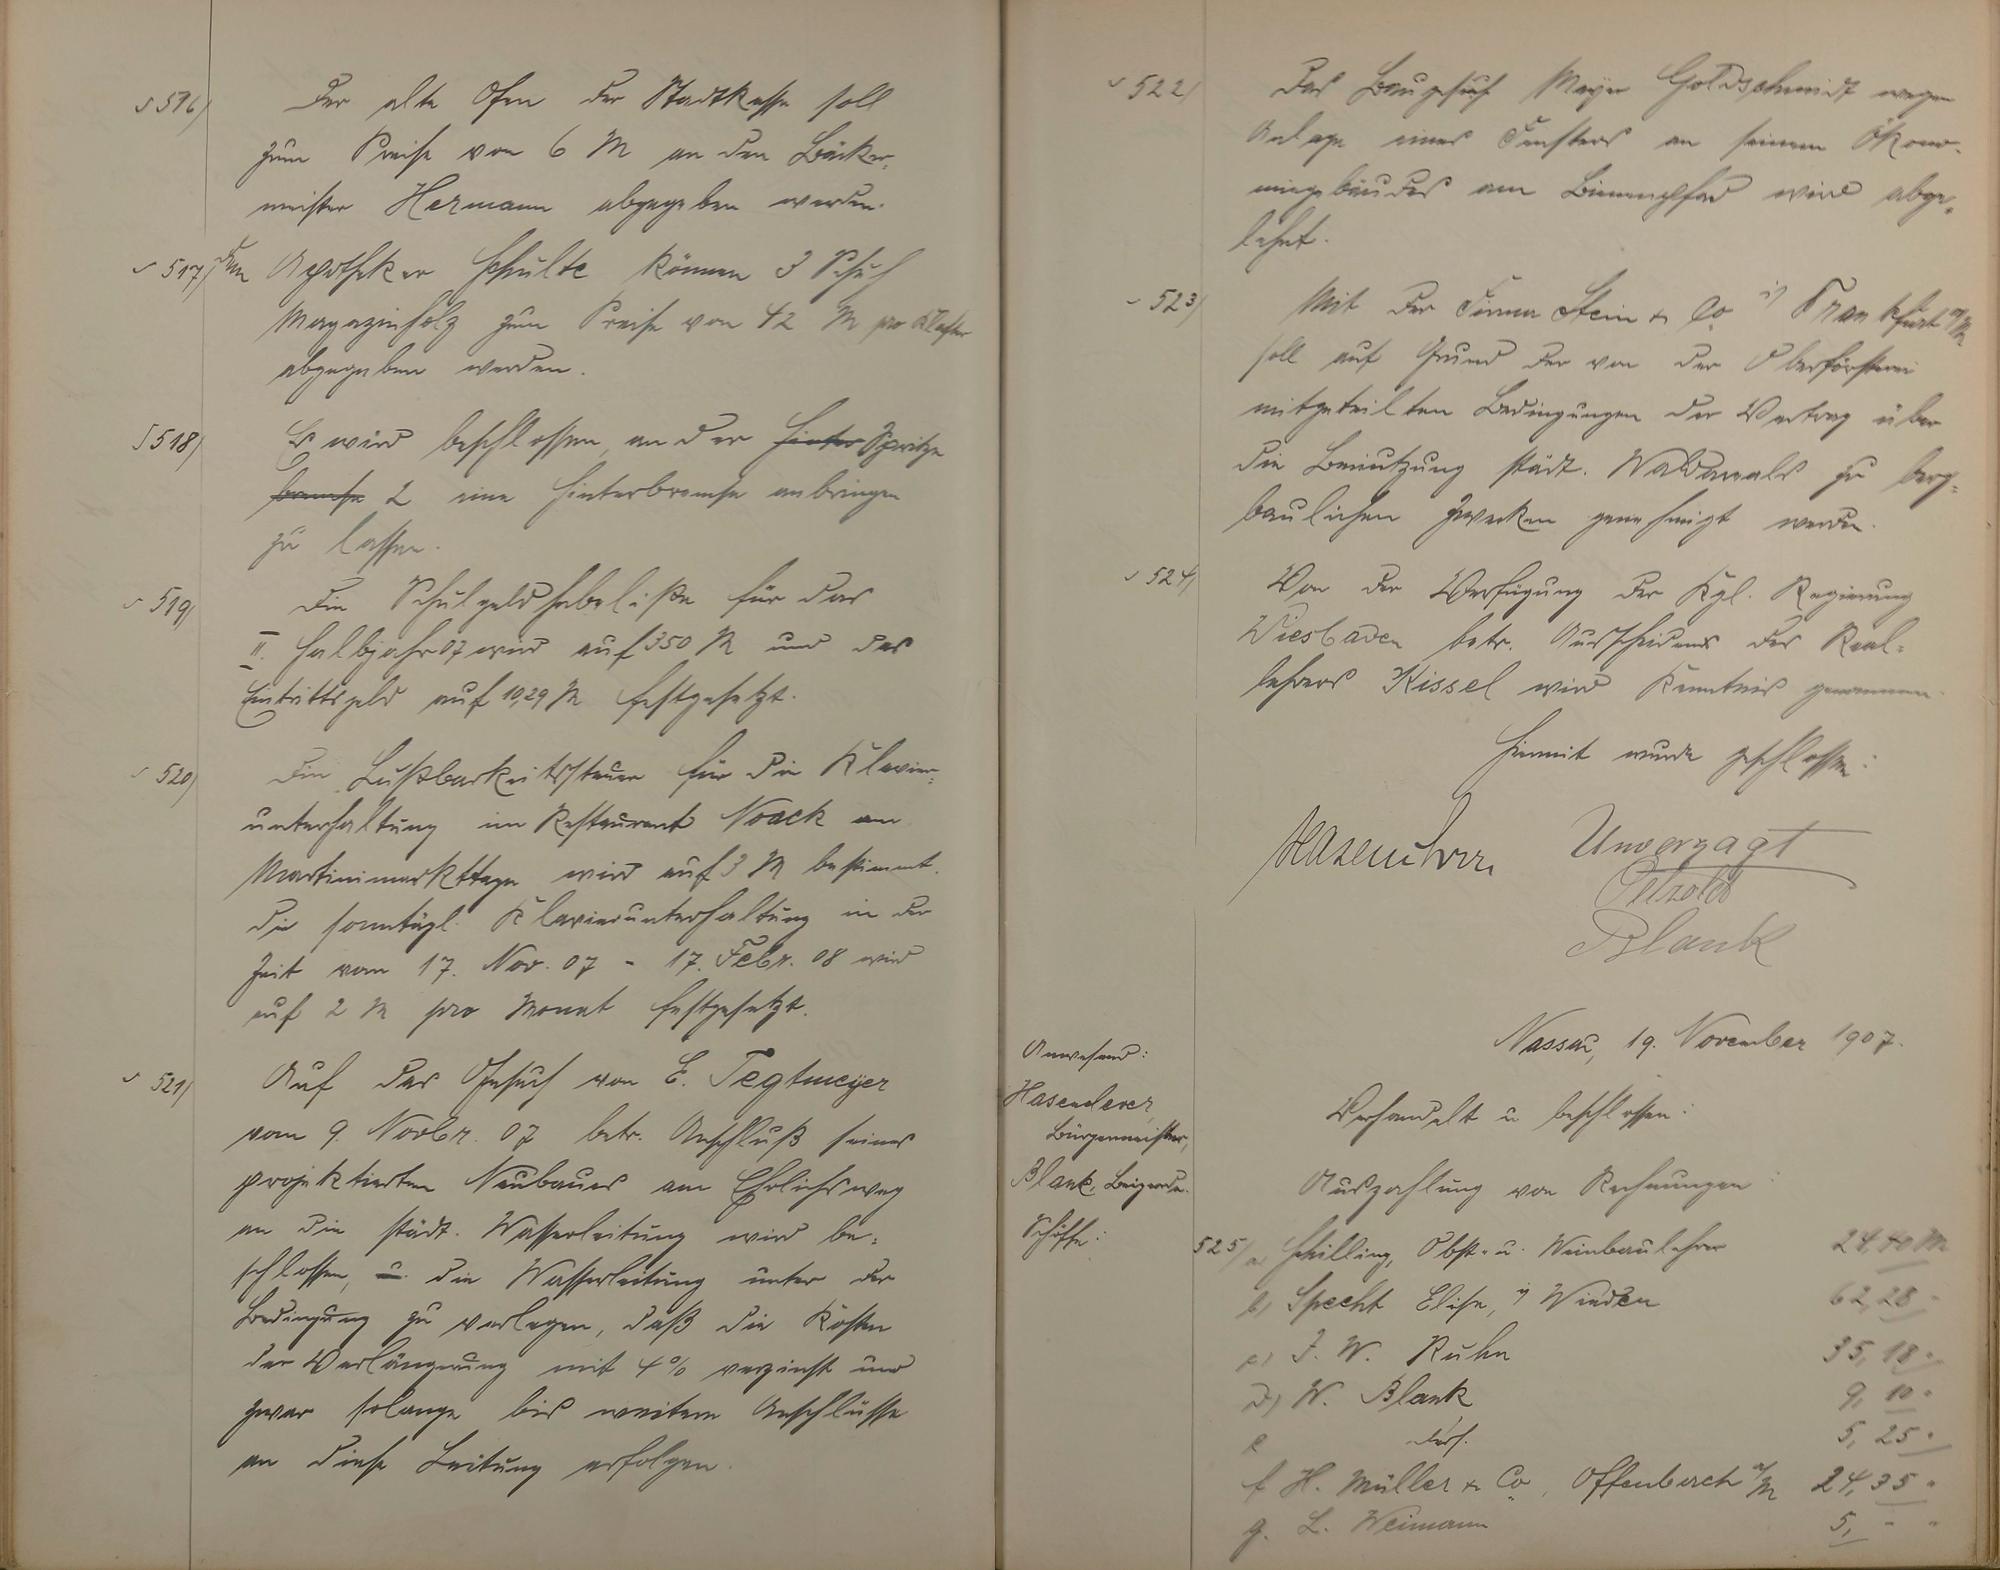 516) Der alte Ofen der Stadtkasse soll
zum Preise von 6 M an den Bäcker-
meister Hermann abgegeben werden.
517) Dem Apotheker Schulte können 3 Schuh
Magazinholz zum Preise von 42 M pro Klafter
abgegeben werden.
518) Es wird beschlossen, an der Hinter Spritze
bremse 2 eine Hinterbremse anbringen
zu lassen.
519) Die Schulgeldhebeliste für das
II. Halbjahr 07 wird auf 350 M und das
Eintrittsgeld auf 10,29 M festgesetzt.
520) Die Lustbarkeitssteuer für die Klavier-
unterhaltung im Restaurant Noack am
Martinimarkttage wird auf 3 M bestimmt.
Die sonntägl. Klavierunterhaltung in der
Zeit vom 17. Nov. 07 - 17. Febr. 08 wird
auf 2 M pro Monat festgesetzt.
521) Auf das Gesuch von E. Tegtmeyer
vom 9. Novbr. 07 betr. Anschluß seines
projektierten Neubaues am Ehrlichsweg
an die städt. Wasserleitung wird be-
schlossen, u. die Wasserleitung unter der
Bedingung zu verlegen, daß die Kosten
der Verlängerung mit 4% verzinst und
zwar solange bis weitere Anschlüsse
an diese Leitung erfolgen.
522) Das Baugesuch Meyer Goldschmidt wegen
Anlage eines Fensters an seinem Ökono-
miegebäudes am wird abge-
lehnt.
523) Mit der Firma Stein & Co in Frankfurt a/M.
soll auf Grund der von der Oberförsterei
mitgeteilten Bedingungen der Vertrag über
die Benutzung städt. Waldareals zu berg-
baulichen Zwecken genehmigt werden.
524) Von der Verfügung der Kgl. Regierung
Wiesbaden betr. Ausscheidens des Real-
lehrers Kissel wird Kenntnis genommen.
Hiermit wurde geschlossen:
Hasenclever Unverzagt
Petzold
Blank
Nassau, 19. November 1907.
Anwesend:
Hasenclever,
Bürgermeister,
Blank, Beigeordn.
Schöffe:
Verhandelt u beschlossen:
Auszahlung von Rechnungen:
525) a Schilling, Obst- u. Weinbaulehrer 24,40 M
b) Specht Elise, in Winden 62,28 "
c) J. W. Kuhn 35,18 "
d) W. Blank 9,10 "
e ders. 5,25 "
f H. Müller & Co, Offenbach a/M 24,35 "
g. L. Weimann 5, - "